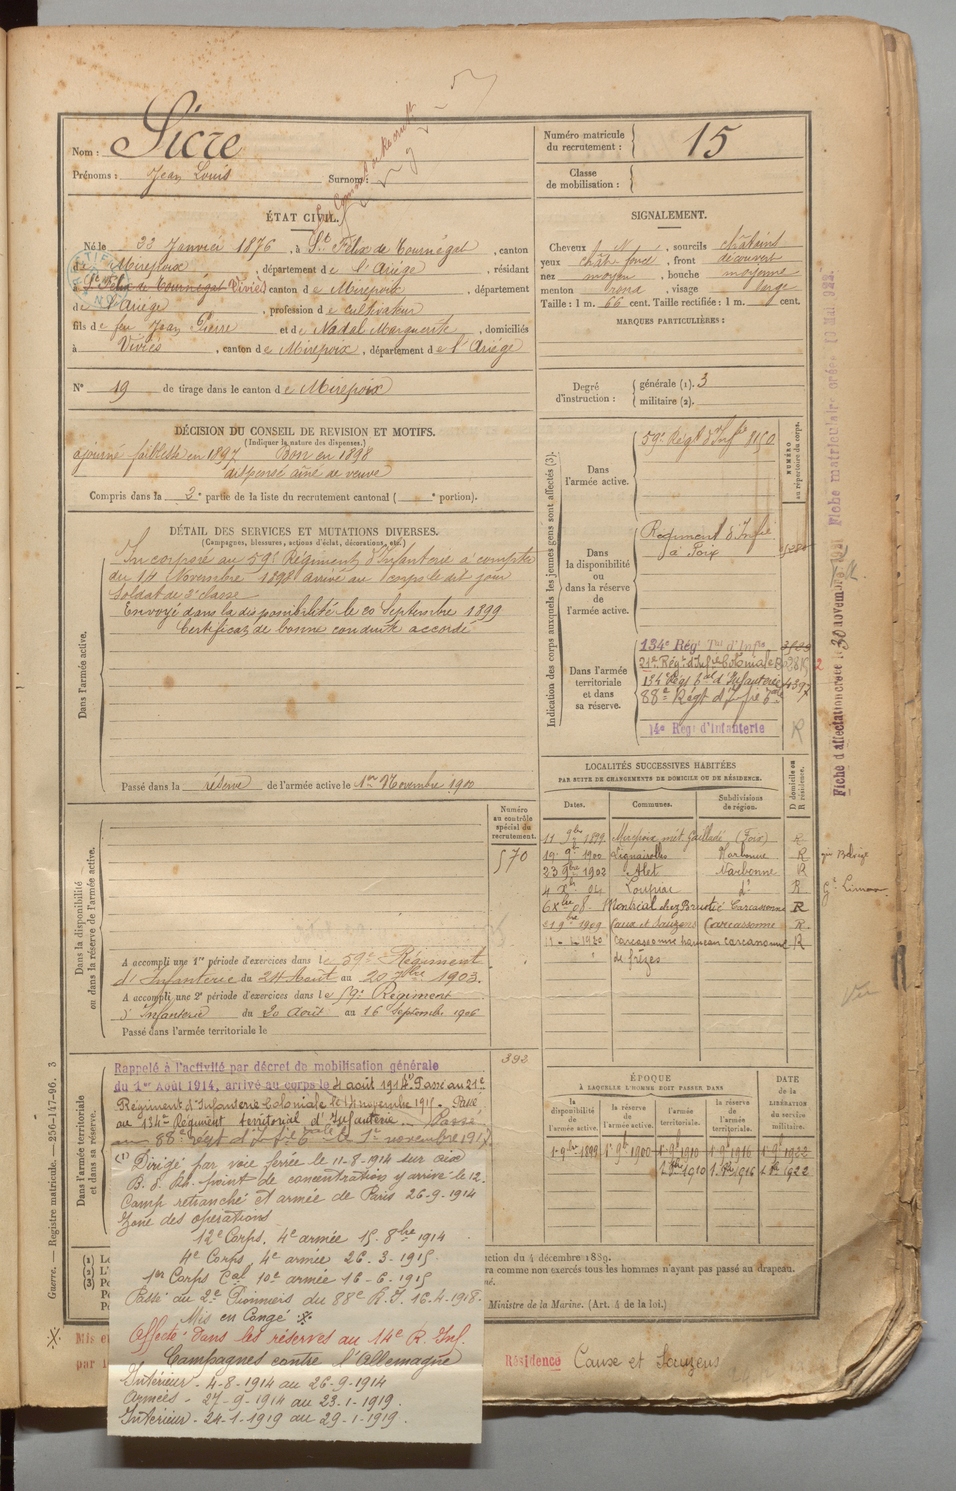 Nom : Sicre
Prénoms : Jean Louis Surnom :
Numéro matricule du recrutement : 15
Classe de mobilisation :
ÉTAT CIVIL.
Né le 23 Janvier 1876, à St Félix de Tournégat, canton
de Mirepoix, département de l'Ariége, résidant
à St Félix de Tournégat Viviès canton de Mirepoix, département
de l'Ariége, profession de cultivateur
fils de feu Jean Pierre et de Nadal Marguerite, domiciliés
à Viviès, canton de Mirepoix, département de l'Ariége
N° 19 de tirage dans le canton de Mirepoix
SIGNALEMENT.
Cheveux N, sourcils châtains
yeux chât. foncé, front découvert
nez moyen, bouche moyenne
menton rond, visage large
Taille : 1 m. 66 cent. Taille rectifiée : 1 m. cent.
MARQUES PARTICULIÈRES :
Degré d'instruction : générale (1). 3
militaire (2).
DÉCISION DU CONSEIL DE REVISION ET MOTIFS.
(Indiquer la nature des dispenses.)
ajourné faiblesse en 1897 Bon en 1898
dispensé aîné de veuve
Compris dans la 2e partie de la liste du recrutement cantonal ( e portion).
DÉTAIL DES SERVICES ET MUTATIONS DIVERSES.
(Campagnes, blessures, actions d'éclat, décorations, etc.)
Dans l'armée active.
Incorporé au 59e Régiment d'Infanterie à compter
du 14 Novembre 1898 arrivé au corps le dit jour
soldat de 2e classe
Envoyé dans la disponibilité le 20 Septembre 1899
Certificat de bonne conduite accordé
Passé dans la réserve de l'armée active le 1er Novembre 1900
Indication des corps auxquels les jeunes gens sont affectés (3).
NUMÉRO au répertoire du corps.
Dans l'armée active.
59e Régt d'Infie 8150
Dans la disponibilité ou dans la réserve de l'armée active.
Régiment d'Infie
à Foix
Dans l'armée territoriale et dans sa réserve.
134e Régt Tal d'Infie
21e Régt d'Infie Coloniale
134e Régt tal d'Infanterie 4397
88e Régt d'Infie
14e Régt d'Infanterie R
LOCALITÉS SUCCESSIVES HABITÉES
PAR SUITE DE CHANGEMENTS DE DOMICILE OU DE RÉSIDENCE.
Dates. Communes. Subdivisions de région. D domicile ou R résidence.
11 9bre 1899 Mirepoix (Foix) R
1900 Lignairolles Narbonne R
23 9bre 1902 Alet Narbonne R
4 Xbre 04 Loupiac do R
6 Xbre 08 Montréal chez Carcassonne R
1909 Caux et Sauzens Carcassonne R
1920 Carcassonne hameau Carcassonne R
de frèzes
Numéro au contrôle spécial du recrutement.
570
Dans la disponibilité ou dans la réserve de l'armée active.
A accompli une 1re période d'exercices dans le 59e Régiment
d'Infanterie du 24 Août au 20 7bre 1903.
A accompli une 2e période d'exercices dans le 59e Régiment
d'Infanterie du 20 août au 16 Septembre 1906
Passé dans l'armée territoriale le
392
Dans l'armée territoriale et dans sa réserve.
Rappelé à l'activité par décret de mobilisation générale
du 1er Août 1914, arrivé au corps le 4 août 1914 (1) Passé au 21e
Régiment d'Infanterie Coloniale le 14 novembre 1915 - Passé
au 134e Régiment territorial d'Infanterie. - Passé
au 88e Régt d'Infie le 1er novembre 1917
(1) Dirigé par voie ferrée le 11-8-1914 sur
point de concentration y arrivé le 12.
Camp retranché et armée de Paris 26-9-1914
Zone des opérations
12e Corps, 4e armée 15 8bre 1914
4e Corps, 4e armée 26-3-1915
1er Corps Cal 10e armée 16-6-1915
Passé au 2e Pionniers du 88e R.I. 16-4-1918.
Mis en Congé
Affecté dans les réserves au 14e R. Inf.
Campagnes contre l'Allemagne
Intérieur - 4-8-1914 au 26-9-1914
Armées - 27-9-1914 au 23-1-1919.
Intérieur - 24-1-1919 au 29-1-1919.
ÉPOQUE
À LAQUELLE L'HOMME DOIT PASSER DANS
la disponibilité de l'armée active. la réserve de l'armée active. l'armée territoriale. la réserve de l'armée territoriale. DATE de la LIBÉRATION du service militaire.
1er 9bre 1899 1er 9bre 1900 1er 9bre 1910 1er 9bre 1916 1er 9bre 1922
1910 1916 1922
ction du 4 décembre 1889.
ra comme non exercés tous les hommes n'ayant pas passé au drapeau.
Ministre de la Marine. (Art. 4 de la loi.)
Guerre. — Registre matricule. — 256-147-96. 3
Résidence Cause et Sauzens
Fiche d'affectation créée le 30 novembre
Fiche matriculaire créée